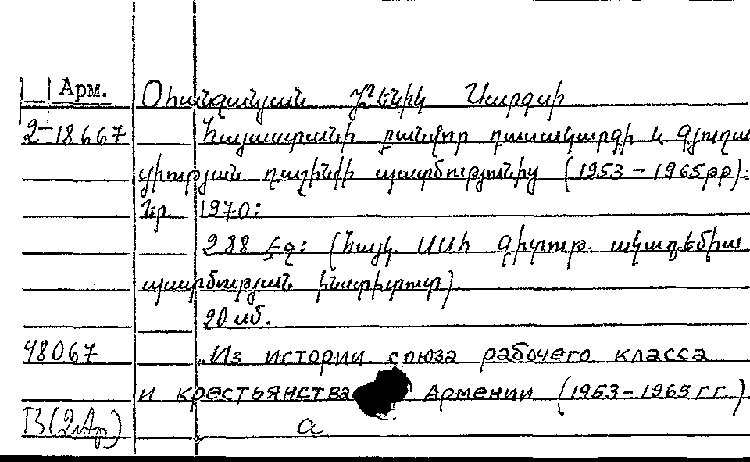 Арм. Օհանջանյան Ջենիկ Սարգսի
2-18667 Հայաստանի բանվոր դասակարգի և գյուղա
ցիության դաշինքի պատմությունից (1953-1965թթ).
Եր. 1970:
288 էջ: (Հայկ. ՍՍՀ Գիտութ. ակադեմիա
պատմության ինստիտուտ)
20 սմ.
48067 "Из истории союза рабочего класса
и крестьянства Армении (1953-1965 г.г.).
а